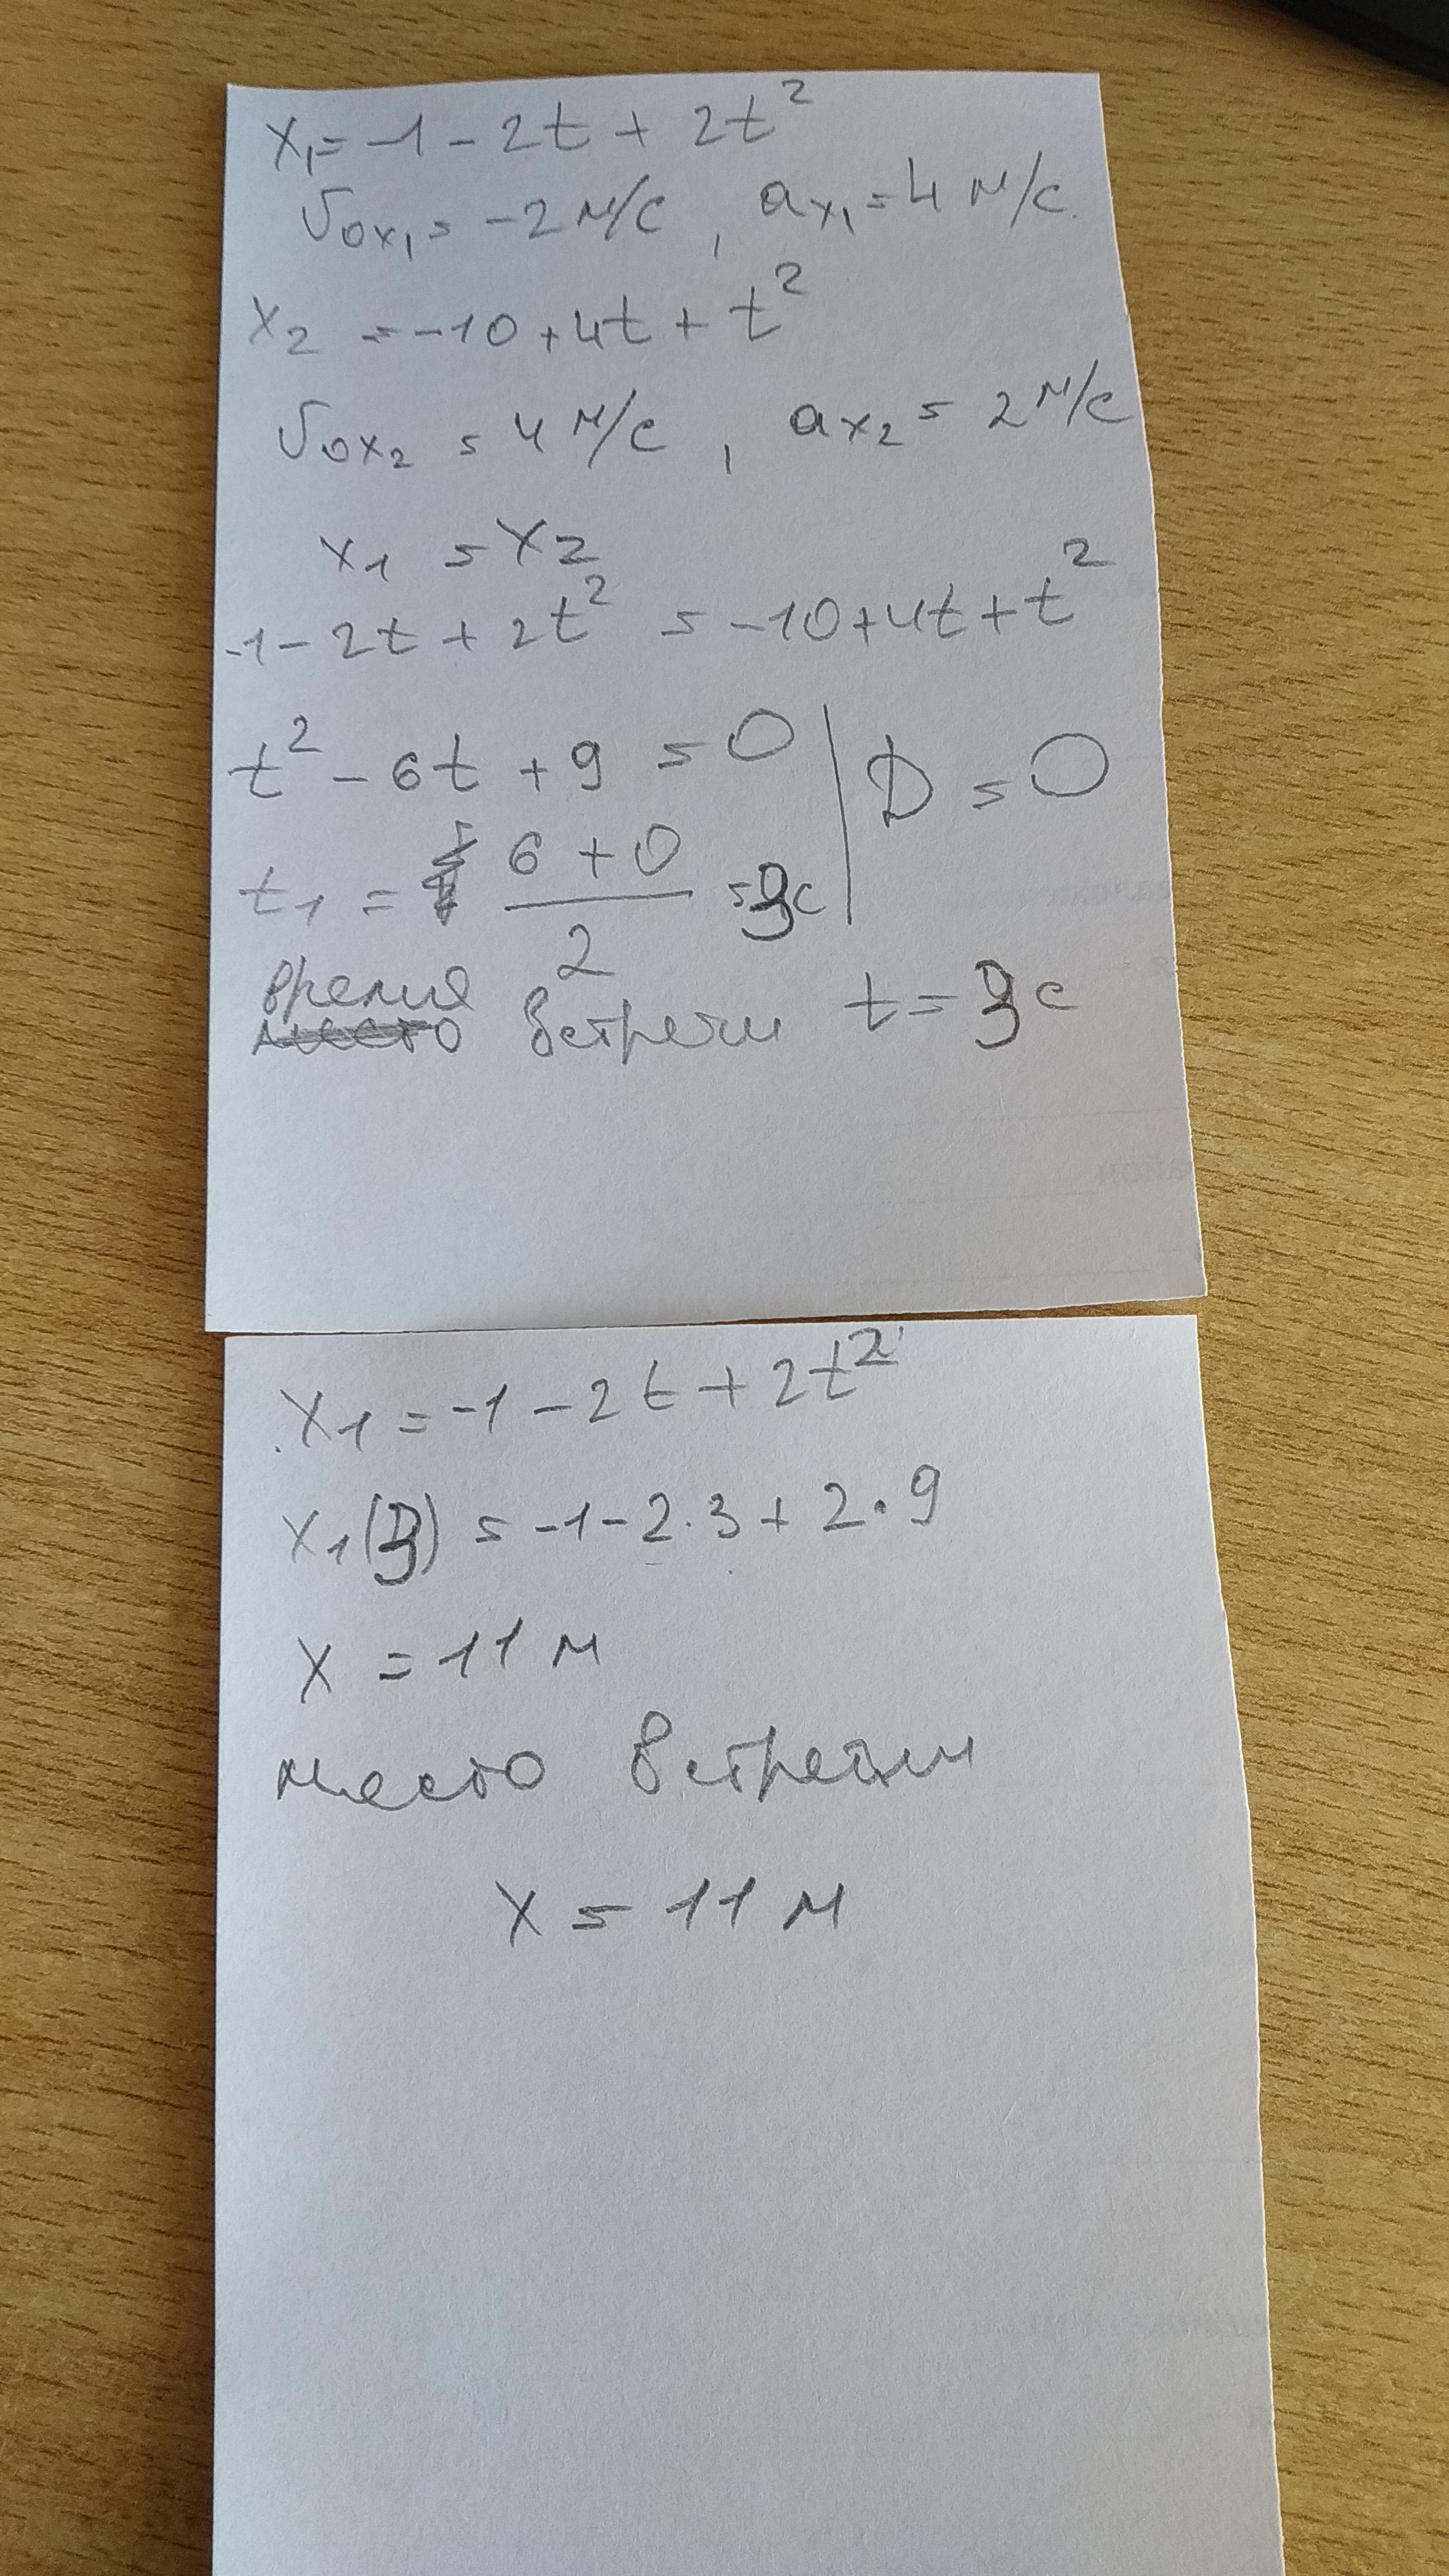 x₁ = -1 - 2t + 2t²
v₀ₓ₁ = -2 м/с , aₓ₁ = 4 м/с
x₂ = -10 + 4t + t²
v₀ₓ₂ = 4 м/с , aₓ₂ = 2 м/с
x₁ = x₂
-1 - 2t + 2t² = -10 + 4t + t²
t² - 6t + 9 = 0 | D = 0
t₁ = (6 + 0)/2 = 3с
время встречи t = 3с
x₁ = -1 - 2t + 2t²
x₁(3) = -1 - 2·3 + 2·9
x = 11 м
место встречи
x = 11 м